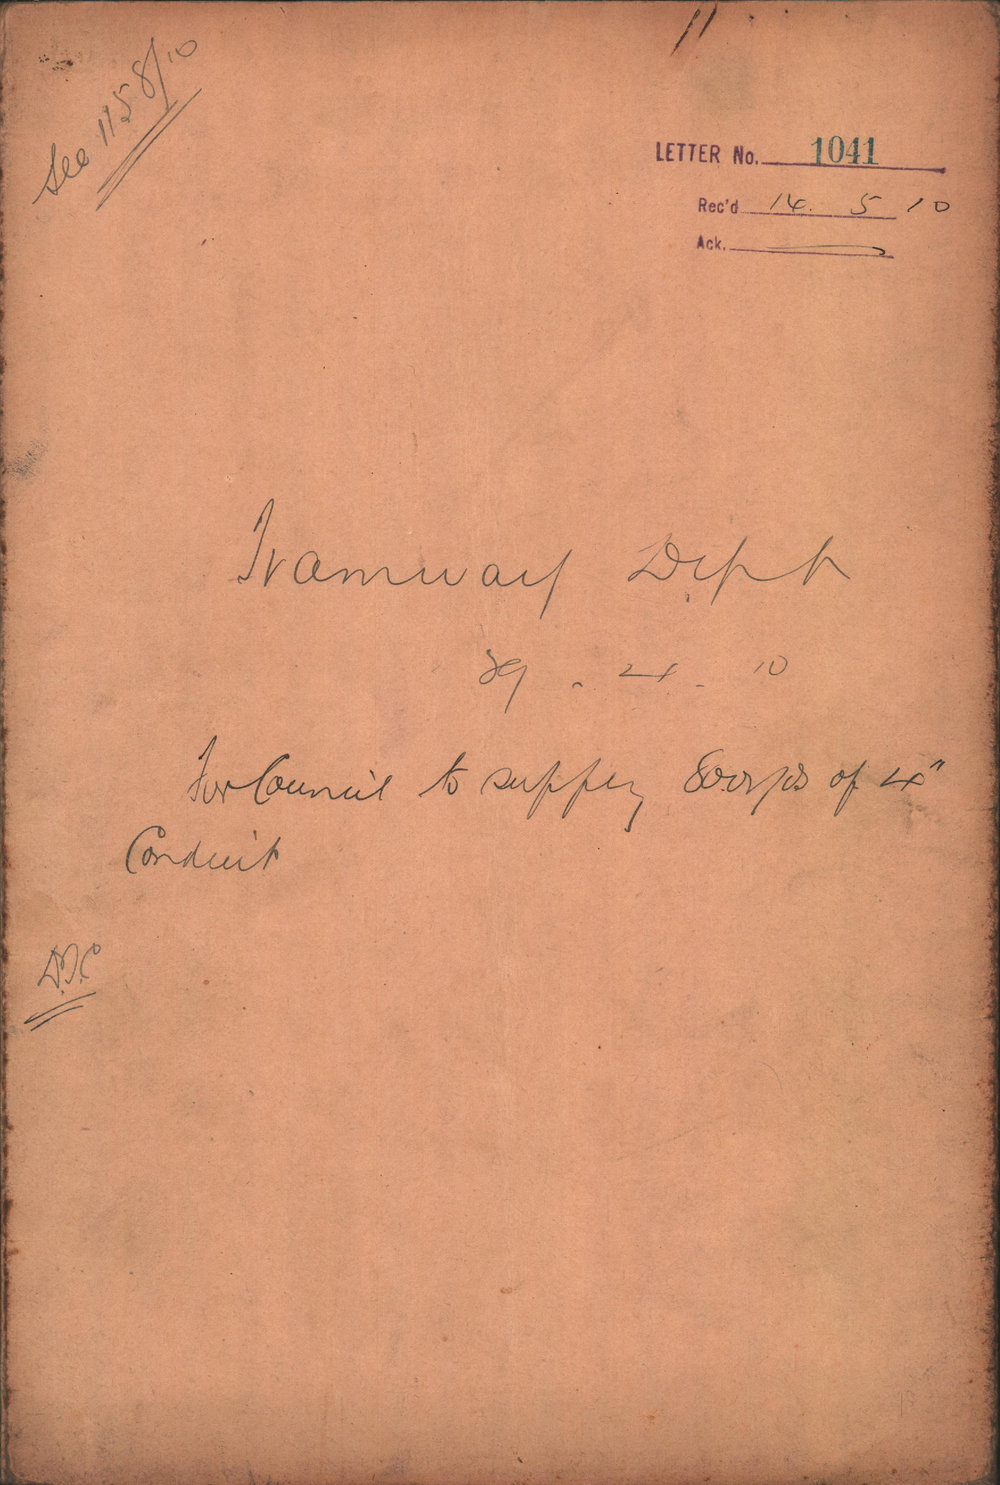 See 1158/10
LETTER No. 1041
Rec'd 14. 5 10
Ack.
Tramway Dept
29. 4. 10
For Council to supply yds of 4"
Conduit